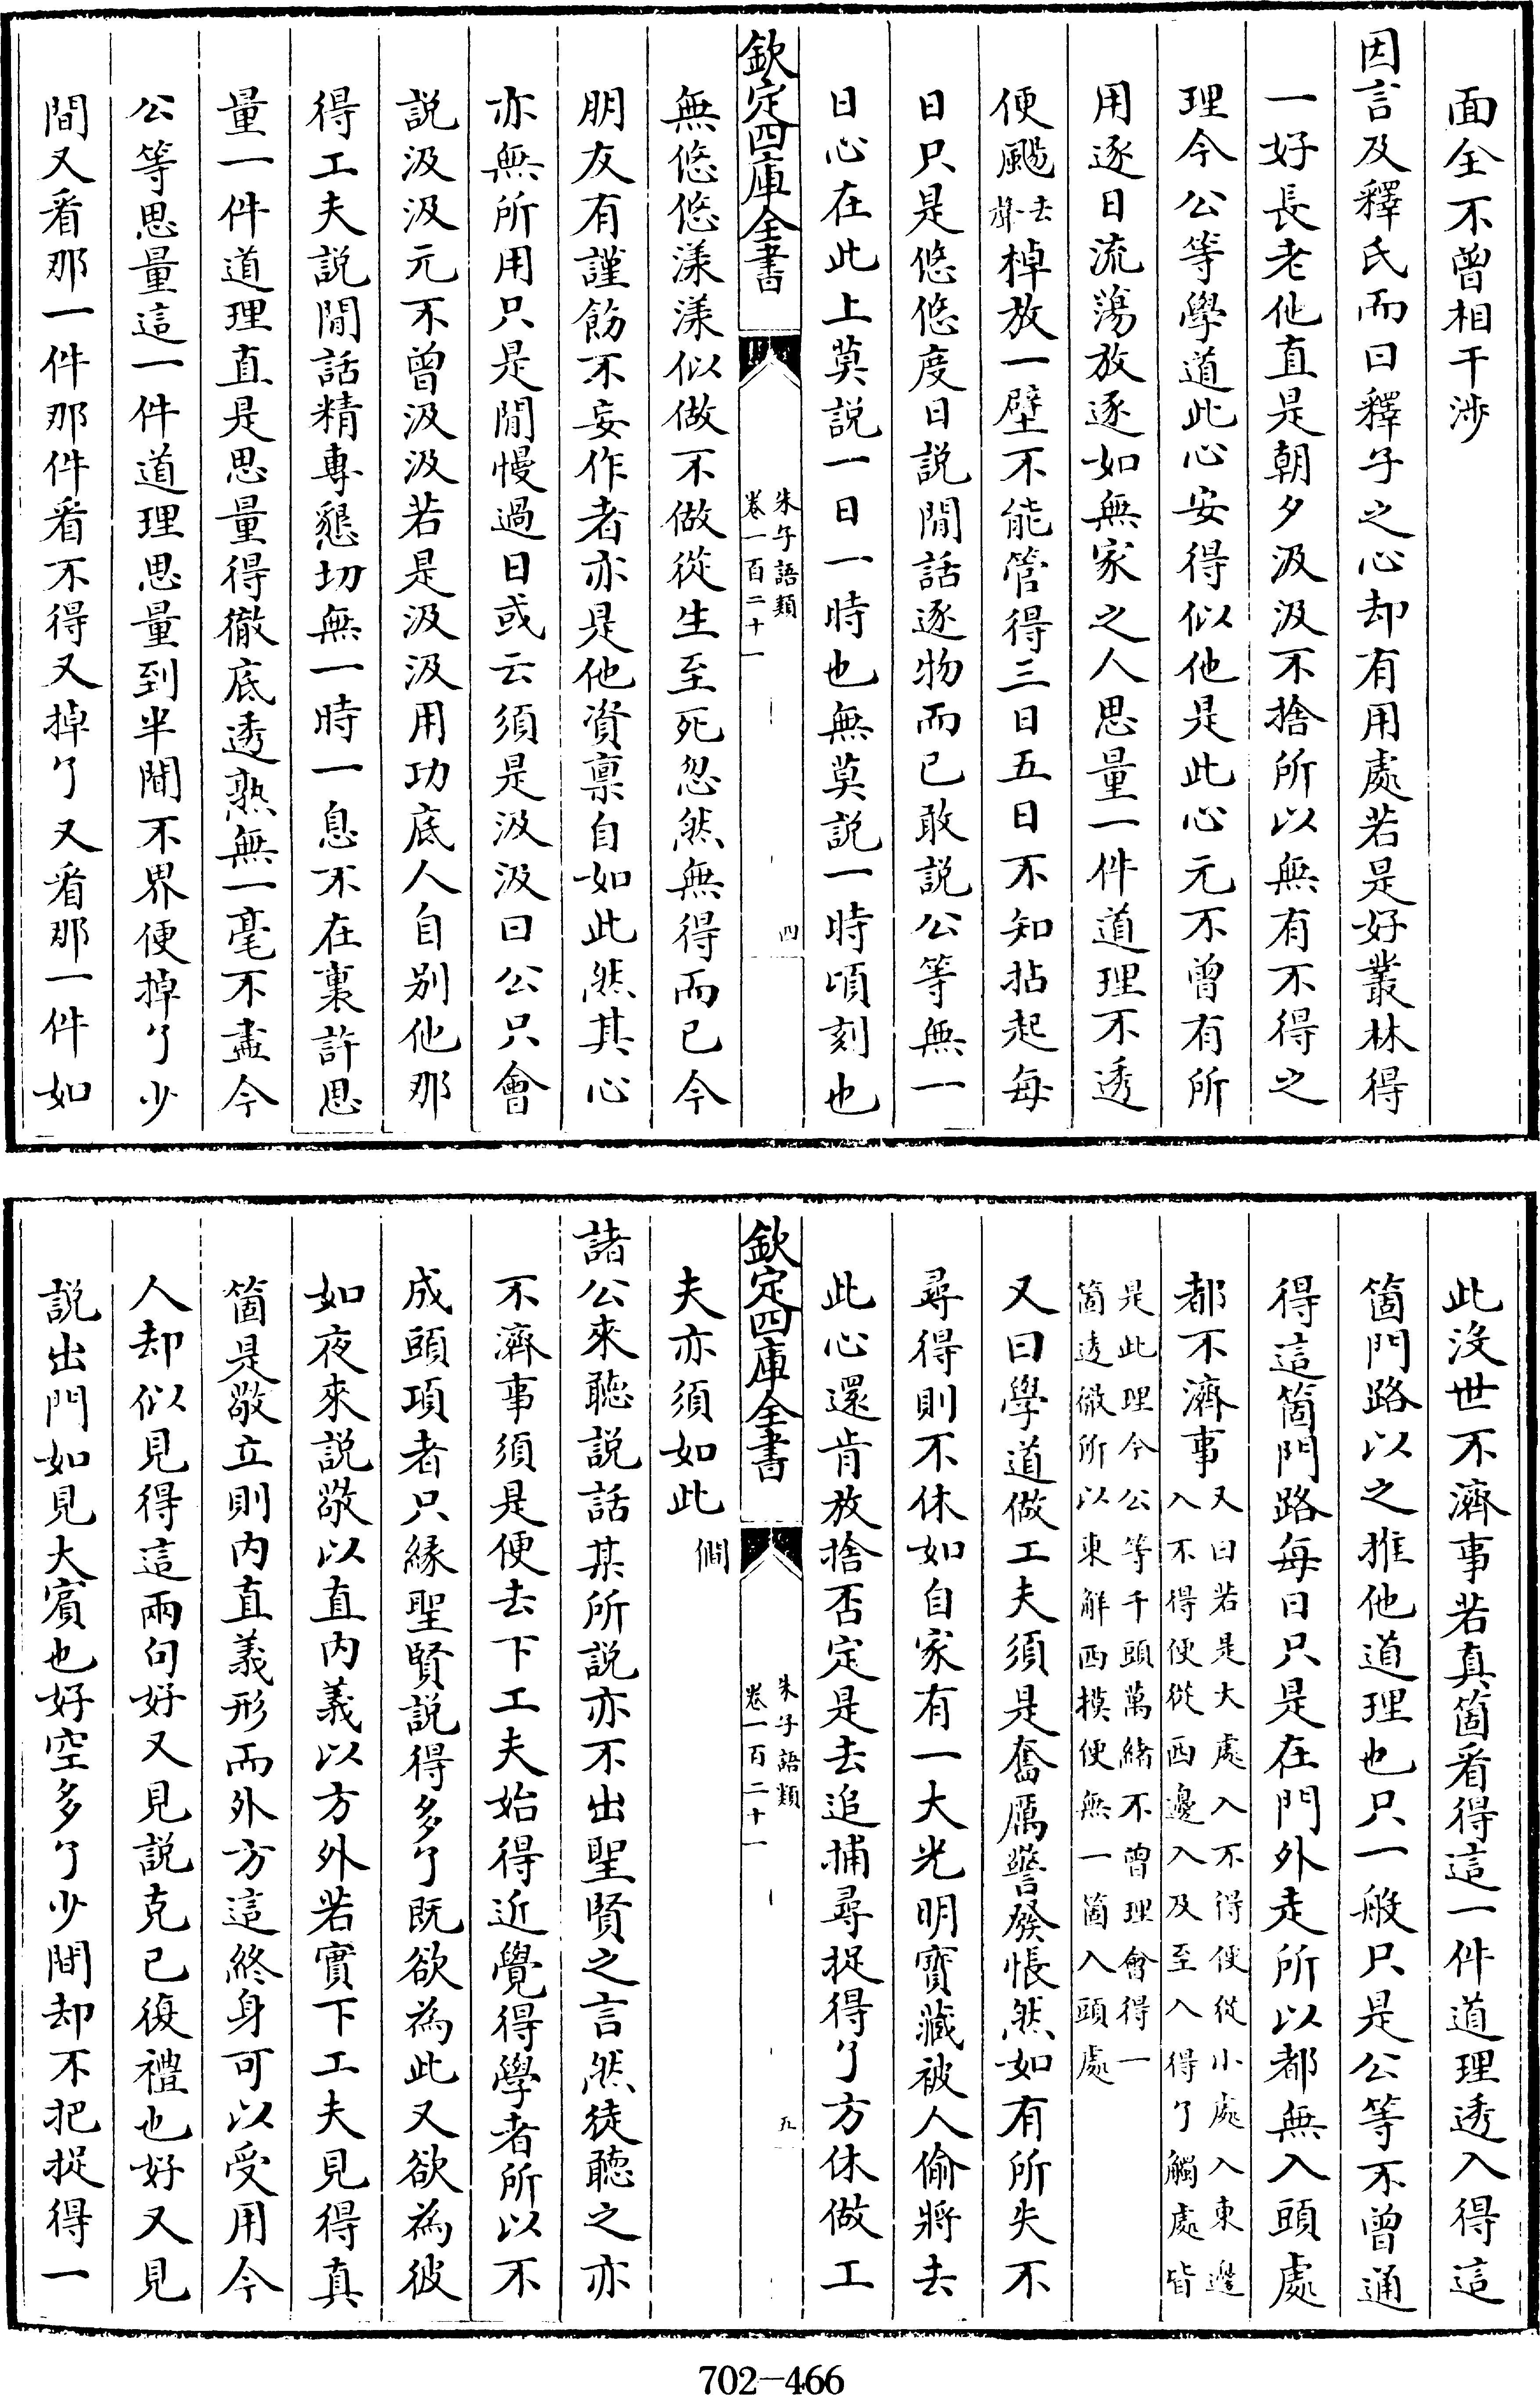 面全不曾相干涉
因言及釋氏而曰釋子之心却有用處若是好叢林得
一好長老他直是朝夕汲汲不捨所以無有不得之
理今公等學道此心安得似他是此心元不曾有所
用逐日流蕩放逐如無家之人思量一件道理不透
便颺去聲掉放一壁不能管得三日五日不知拈起每
日只是悠悠度日説閒話逐物而已敢説公等無一
日心在此上莫説一日一時也無莫説一時頃刻也
欽定四庫全書
朱子語類
卷一百二十一
四
無悠悠漾漾似做不做從生至死忽然無得而已今
朋友有謹飭不妄作者亦是他資禀自如此然其心
亦無所用只是閒慢過日或云須是汲汲曰公只會
説汲汲元不曾汲汲若是汲汲用功底人自别他那
得工夫説閒話精專懇切無一時一息不在裏許思
量一件道理直是思量得徹底透熟無一毫不盡今
公等思量這一件道理思量到半間不界便掉了少
間又看那一件那件看不得又掉了又看那一件如
此沒世不濟事若真箇看得這一件道理透入得這
箇門路以之推他道理也只一般只是公等不曾通
得這箇門路每日只是在門外走所以都無入頭處
都不濟事又曰若是大處入不得便從小處入東邊
入不得便從西邊入及至入得了觸處皆
是此理今公等千頭萬緒不曾理會得一
箇透徹所以東解西模便無一箇入頭處
又曰學道做工夫須是奮厲警發悵然如有所失不
尋得則不休如自家有一大光明寶藏被人偷將去
此心還肯放捨否定是去追捕尋捉得了方休做工
欽定四庫全書
朱子語類
卷一百二十一
九
夫亦須如此 僩
諸公來聽説話某所説亦不出聖賢之言然徒聽之亦
不濟事須是便去下工夫始得近覺得學者所以不
成頭項者只緣聖賢説得多了既欲為此又欲為彼
如夜來説敬以直内義以方外若實下工夫見得真
箇是敬立則内直義形而外方這終身可以受用今
人却似見得這兩句好又見説克已復禮也好又見
説出門如見大賓也好空多了少間却不把捉得一
702—466